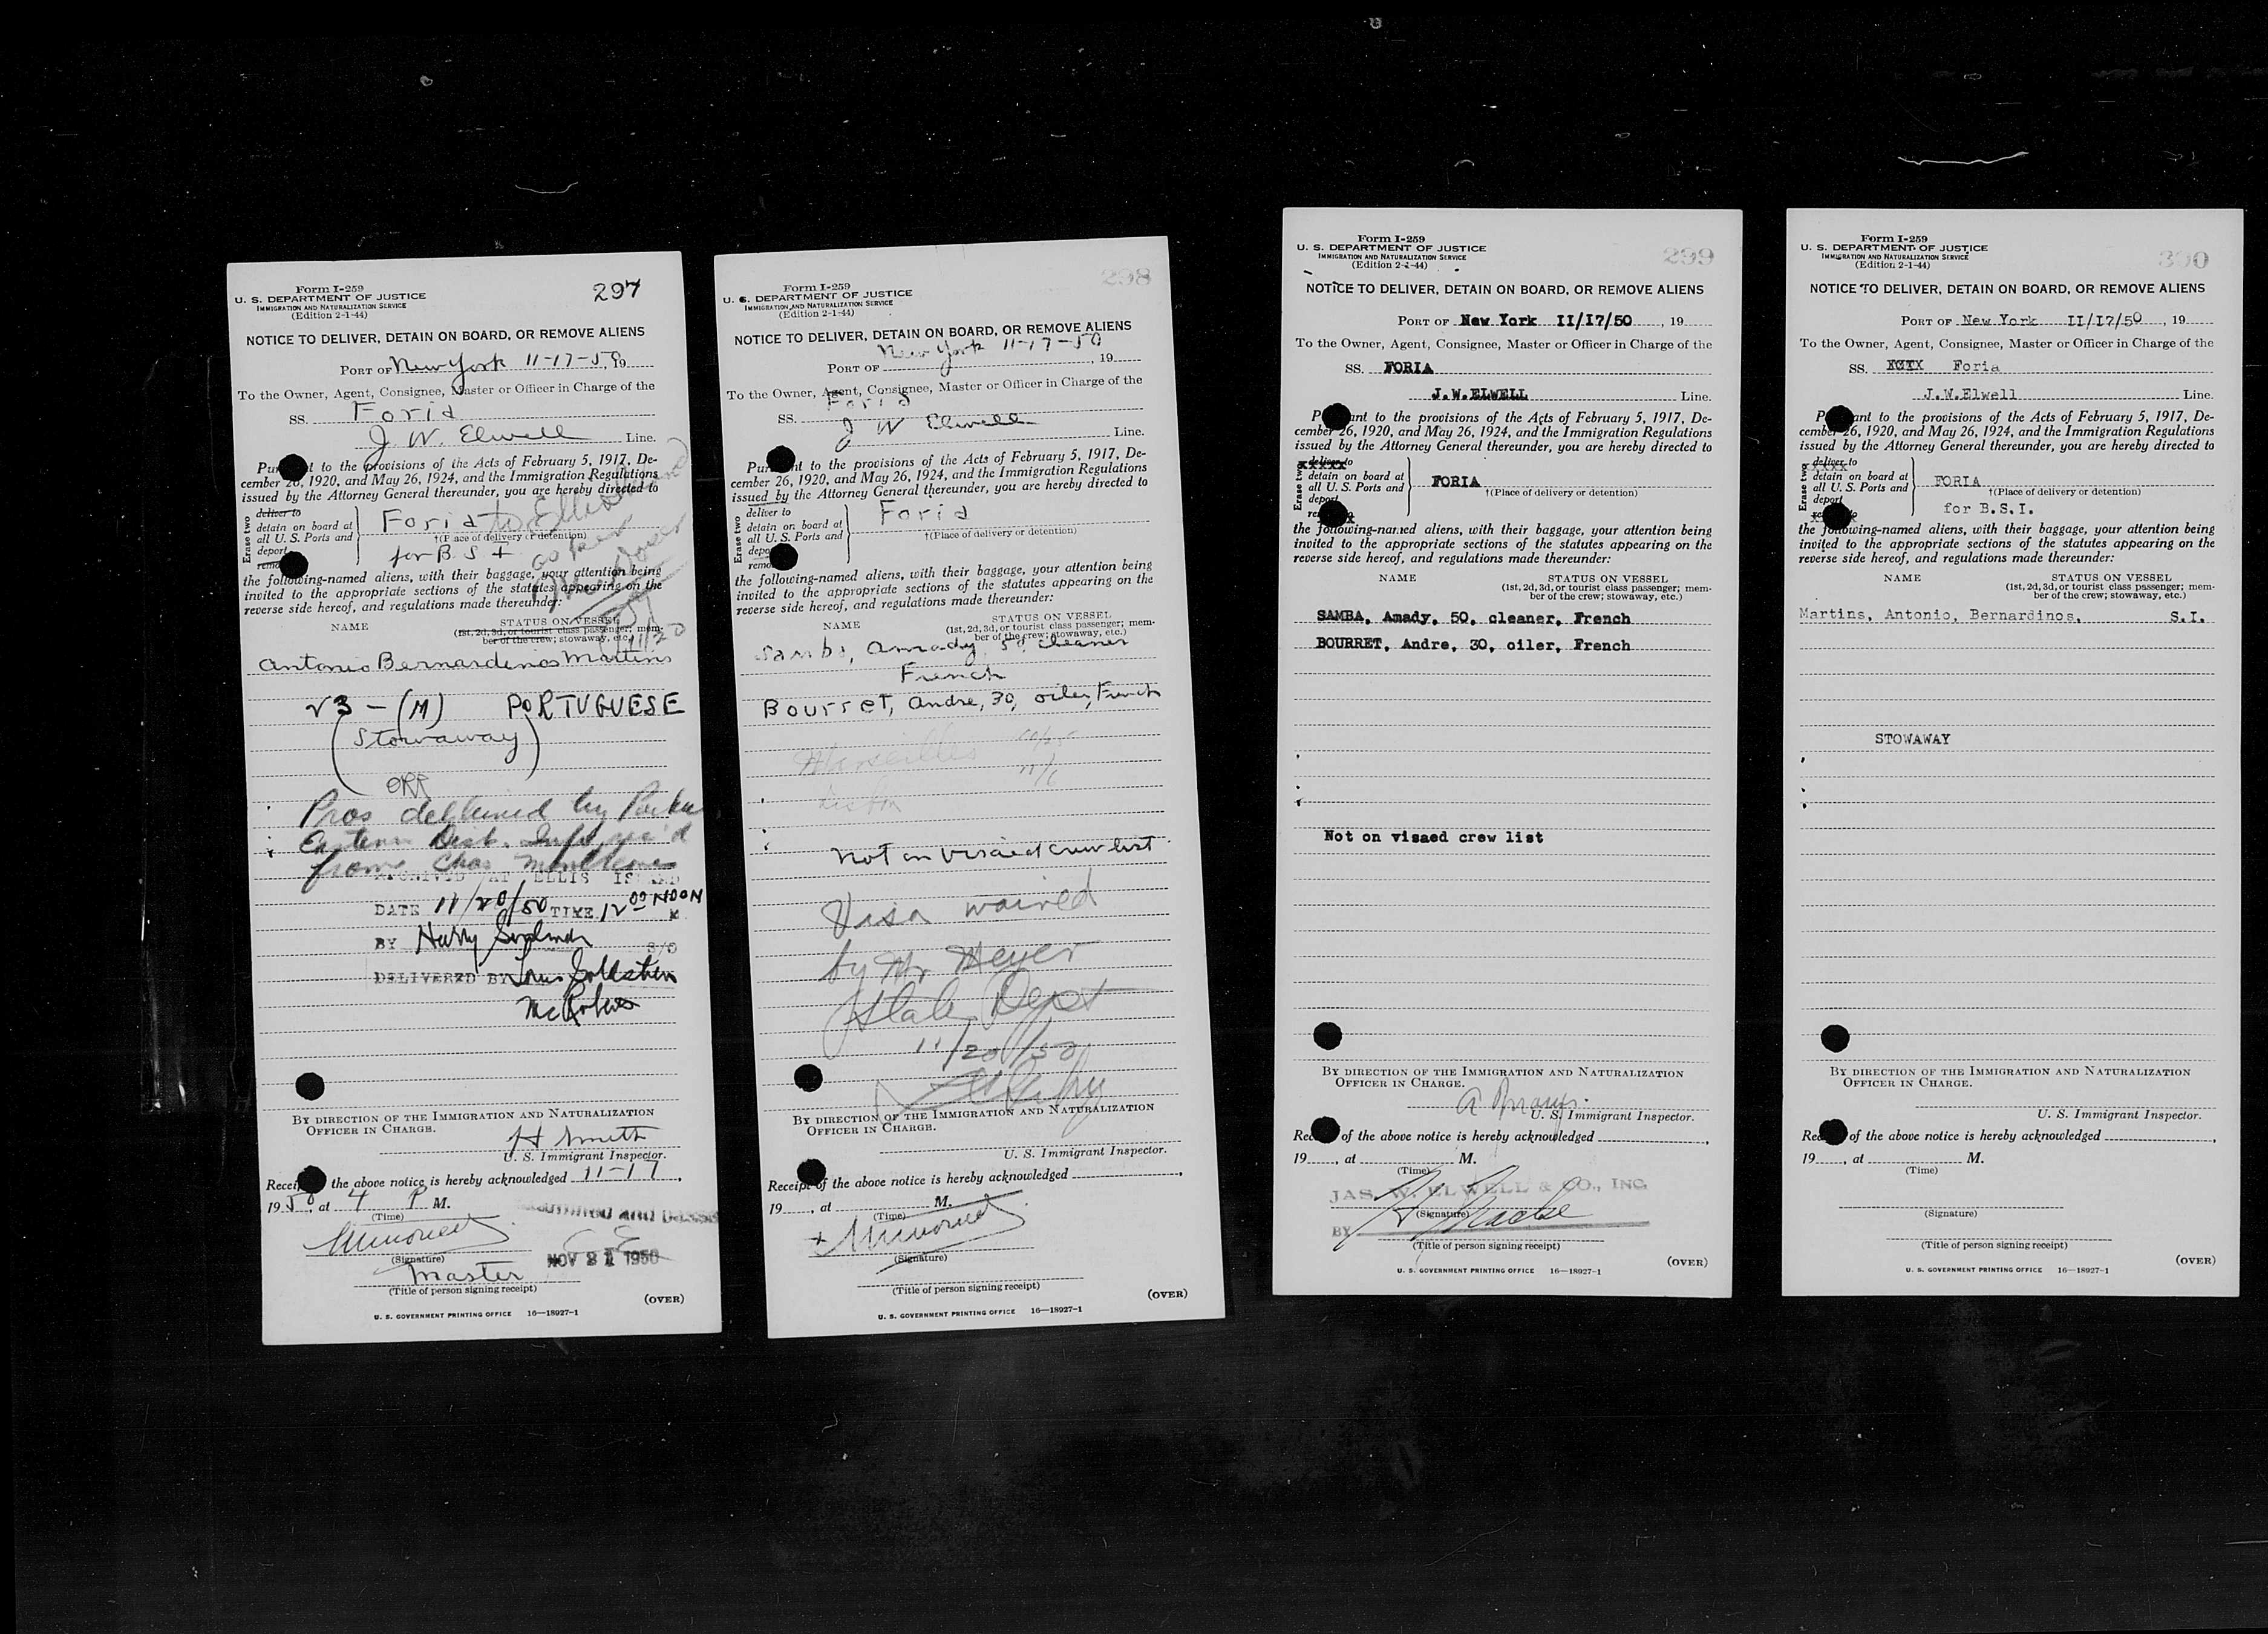 297
Form I-259
U. S. DEPARTMENT OF JUSTICE
IMMIGRATION AND NATURALIZATION SERVICE
(Edition 2-1-44)
NOTICE TO DELIVER, DETAIN ON BOARD, OR REMOVE ALIENS
PORT OF New York 11-17-50, 19
To the Owner, Agent, Consignee, Master or Officer in Charge of the
SS. Foria
J. W. Elwell Line.
Pur t to the provisions of the Acts of February 5, 1917, De-
cember 26, 1920, and May 26, 1924, and the Immigration Regulations
issued by the Attorney General thereunder, you are hereby directed to
Erase two
deliver to
detain on board at
all U. S. Ports and
deport
remo
Foria to Ellis
†(Place of delivery or detention)
for B S I
the following-named aliens, with their baggage, your attention being
invited to the appropriate sections of the statutes appearing on the
reverse side hereof, and regulations made thereunder:
NAME STATUS ON VESSEL
(1st, 2d, 3d, or tourist class passenger; mem-
ber of the crew; stowaway, etc.)
11/20
Antonio Bernardinos Martins
23 - (M) PORTUGUESE
(Stowaway)
ORR
Pros declined by Parker
Eastern Dist. Info, rec'd
from Chas
RECEIVED AT ELLIS ISLAND
DATE 11/20/50 TIME 12 00 NOON M
BY Harry
DELIVERED BY Louis Goldstein
BY DIRECTION OF THE IMMIGRATION AND NATURALIZATION
OFFICER IN CHARGE.
H Smith
U. S. Immigrant Inspector.
Receip the above notice is hereby acknowledged 11-17,
19 50, at 4 P M.
(Time)
(Signature)
NOV 21 1950
Master
(Title of person signing receipt)
(OVER)
U. S. GOVERNMENT PRINTING OFFICE 16—18927-1
298
Form I-259
U. S. DEPARTMENT OF JUSTICE
IMMIGRATION AND NATURALIZATION SERVICE
(Edition 2-1-44)
NOTICE TO DELIVER, DETAIN ON BOARD, OR REMOVE ALIENS
New York 11-17-50
PORT OF , 19
To the Owner, Agent, Consignee, Master or Officer in Charge of the
SS. Foria
J W Elwell Line.
Pur nt to the provisions of the Acts of February 5, 1917, De-
cember 26, 1920, and May 26, 1924, and the Immigration Regulations
issued by the Attorney General thereunder, you are hereby directed to
Erase two
deliver to
detain on board at
all U. S. Ports and
depo
remo
Foria
†(Place of delivery or detention)
the following-named aliens, with their baggage, your attention being
invited to the appropriate sections of the statutes appearing on the
reverse side hereof, and regulations made thereunder:
NAME STATUS ON VESSEL
(1st, 2d, 3d, or tourist class passenger; mem-
ber of the crew; stowaway, etc.)
Samba, Amady, 50, cleaner
French
Bourret, Andre, 30, oiler, French
Marseilles 10/25
Lisbon 11/6
Not on visaed crew list
Visa waived
by Mr Meyer
State Dept
11/20/50
BY DIRECTION OF THE IMMIGRATION AND NATURALIZATION
OFFICER IN CHARGE.
U. S. Immigrant Inspector.
Receipt of the above notice is hereby acknowledged ,
19 , at M.
(Time)
(Signature)
(Title of person signing receipt)
(OVER)
U. S. GOVERNMENT PRINTING OFFICE 16—18927-1
299
Form I-259
U. S. DEPARTMENT OF JUSTICE
IMMIGRATION AND NATURALIZATION SERVICE
(Edition 2-1-44)
NOTICE TO DELIVER, DETAIN ON BOARD, OR REMOVE ALIENS
PORT OF New York II/I7/50 , 19
To the Owner, Agent, Consignee, Master or Officer in Charge of the
SS. FORIA
J.W.ELWELL Line.
P ant to the provisions of the Acts of February 5, 1917, De-
cember 26, 1920, and May 26, 1924, and the Immigration Regulations
issued by the Attorney General thereunder, you are hereby directed to
Erase two
deliver to
detain on board at
all U. S. Ports and
deport
re
FORIA
†(Place of delivery or detention)
the following-named aliens, with their baggage, your attention being
invited to the appropriate sections of the statutes appearing on the
reverse side hereof, and regulations made thereunder:
NAME STATUS ON VESSEL
(1st, 2d, 3d, or tourist class passenger; mem-
ber of the crew; stowaway, etc.)
SAMBA, Amady, 50, cleaner, French
BOURRET, Andre, 30, oiler, French
Not on visaed crew list
BY DIRECTION OF THE IMMIGRATION AND NATURALIZATION
OFFICER IN CHARGE.
U. S. Immigrant Inspector.
Rec of the above notice is hereby acknowledged ,
19 , at M.
(Time)
JAS. W. ELWELL & CO., INC.
(Signature)
BY
(Title of person signing receipt)
(OVER)
U. S. GOVERNMENT PRINTING OFFICE 16—18927-1
300
Form I-259
U. S. DEPARTMENT OF JUSTICE
IMMIGRATION AND NATURALIZATION SERVICE
(Edition 2-1-44)
NOTICE TO DELIVER, DETAIN ON BOARD, OR REMOVE ALIENS
PORT OF New York II/I7/50 , 19
To the Owner, Agent, Consignee, Master or Officer in Charge of the
SS. Foria
J.W.Elwell Line.
P ant to the provisions of the Acts of February 5, 1917, De-
cember 26, 1920, and May 26, 1924, and the Immigration Regulations
issued by the Attorney General thereunder, you are hereby directed to
Erase two
deliver to
detain on board at
all U. S. Ports and
deport
FORIA
†(Place of delivery or detention)
for B.S.I.
the following-named aliens, with their baggage, your attention being
invited to the appropriate sections of the statutes appearing on the
reverse side hereof, and regulations made thereunder:
NAME STATUS ON VESSEL
(1st, 2d, 3d, or tourist class passenger; mem-
ber of the crew; stowaway, etc.)
Martins, Antonio, Bernardinos, S.I.
STOWAWAY
BY DIRECTION OF THE IMMIGRATION AND NATURALIZATION
OFFICER IN CHARGE.
U. S. Immigrant Inspector.
Rec of the above notice is hereby acknowledged ,
19 , at M.
(Time)
(Signature)
(Title of person signing receipt)
(OVER)
U. S. GOVERNMENT PRINTING OFFICE 16—18927-1